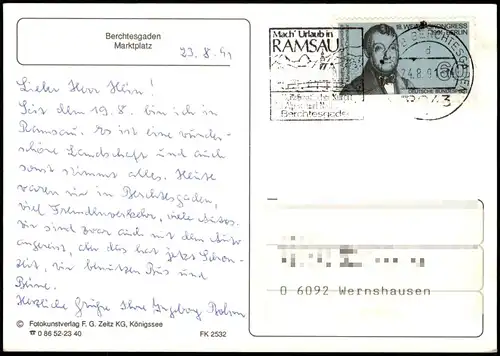 Berchtesgaden
Marktplatz
23.8.91
Lieber Herr Hein!
Seit dem 19.8. bin ich in
Ramsau. Es ist eine wunder-
schöne Landschaft und auch
sonst stimmt alles. Heute
waren wir in Berchtesgaden,
viel Fremdenverkehr, viele Autos.
Wir sind zwar auch mit dem Auto
angereist, aber das hat jetzt Schon-
zeit, wir benutzen Bus und
Beine.
Herzliche Grüße Ihre Ingeborg
© Fotokunstverlag F. G. Zeitz KG, Königssee
☎ 0 86 52-23 40
FK 2532
Mach' Urlaub in
RAMSAU
Berchtesgaden
BERCHTESGADEN
d
24.8.91
8243
DEUTSCHE BUNDESPOST
O 6092 Wernshausen